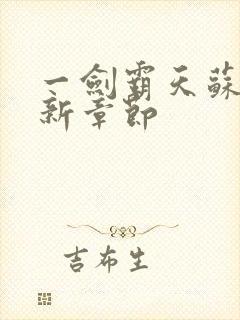 一劍霸天蘇
新章節
吉布生